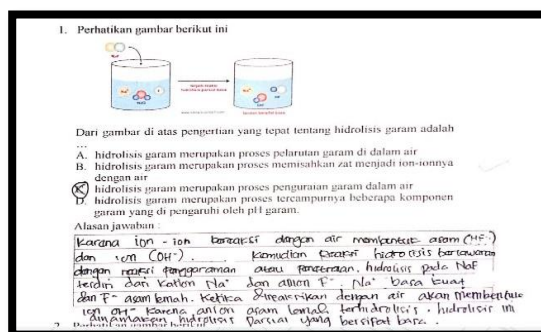 1. Perhatikan gambar berikut ini
Dari gambar di atas pengertian yang tepat tentang hidrolisis garam adalah
...
A. hidrolisis garam merupakan proses pelarutan garam di dalam air
B. hidrolisis garam merupakan proses memisahkan zat menjadi ion-ionnya
dengan air
hidrolisis garam merupakan proses penguraian garam dalam air
D. hidrolisis garam merupakan proses tercampurnya beberapa komponen
garam yang di pengaruhi oleh pH garam.
Alasan jawaban :
Karena ion - ion bereaksi dengan air membentuk asam (HF-)
dan ion (OH-). Kemudian reaksi hidrolisis berlawanan
dengan reaksi penggaraman atau penetralan, hidrolisis pada NaF
terdiri dari kation Na+ dan anion F- Na+ basa kuat
dan F- asam lemah. Ketika direaksikan dengan air akan membentuk
ion OH- karena anion asam lemah terhidrolisis. hidrolisis ini
dinamakan hidrolisis Parsial yang bersifat basa.
2. Perhatikan gambar berikut